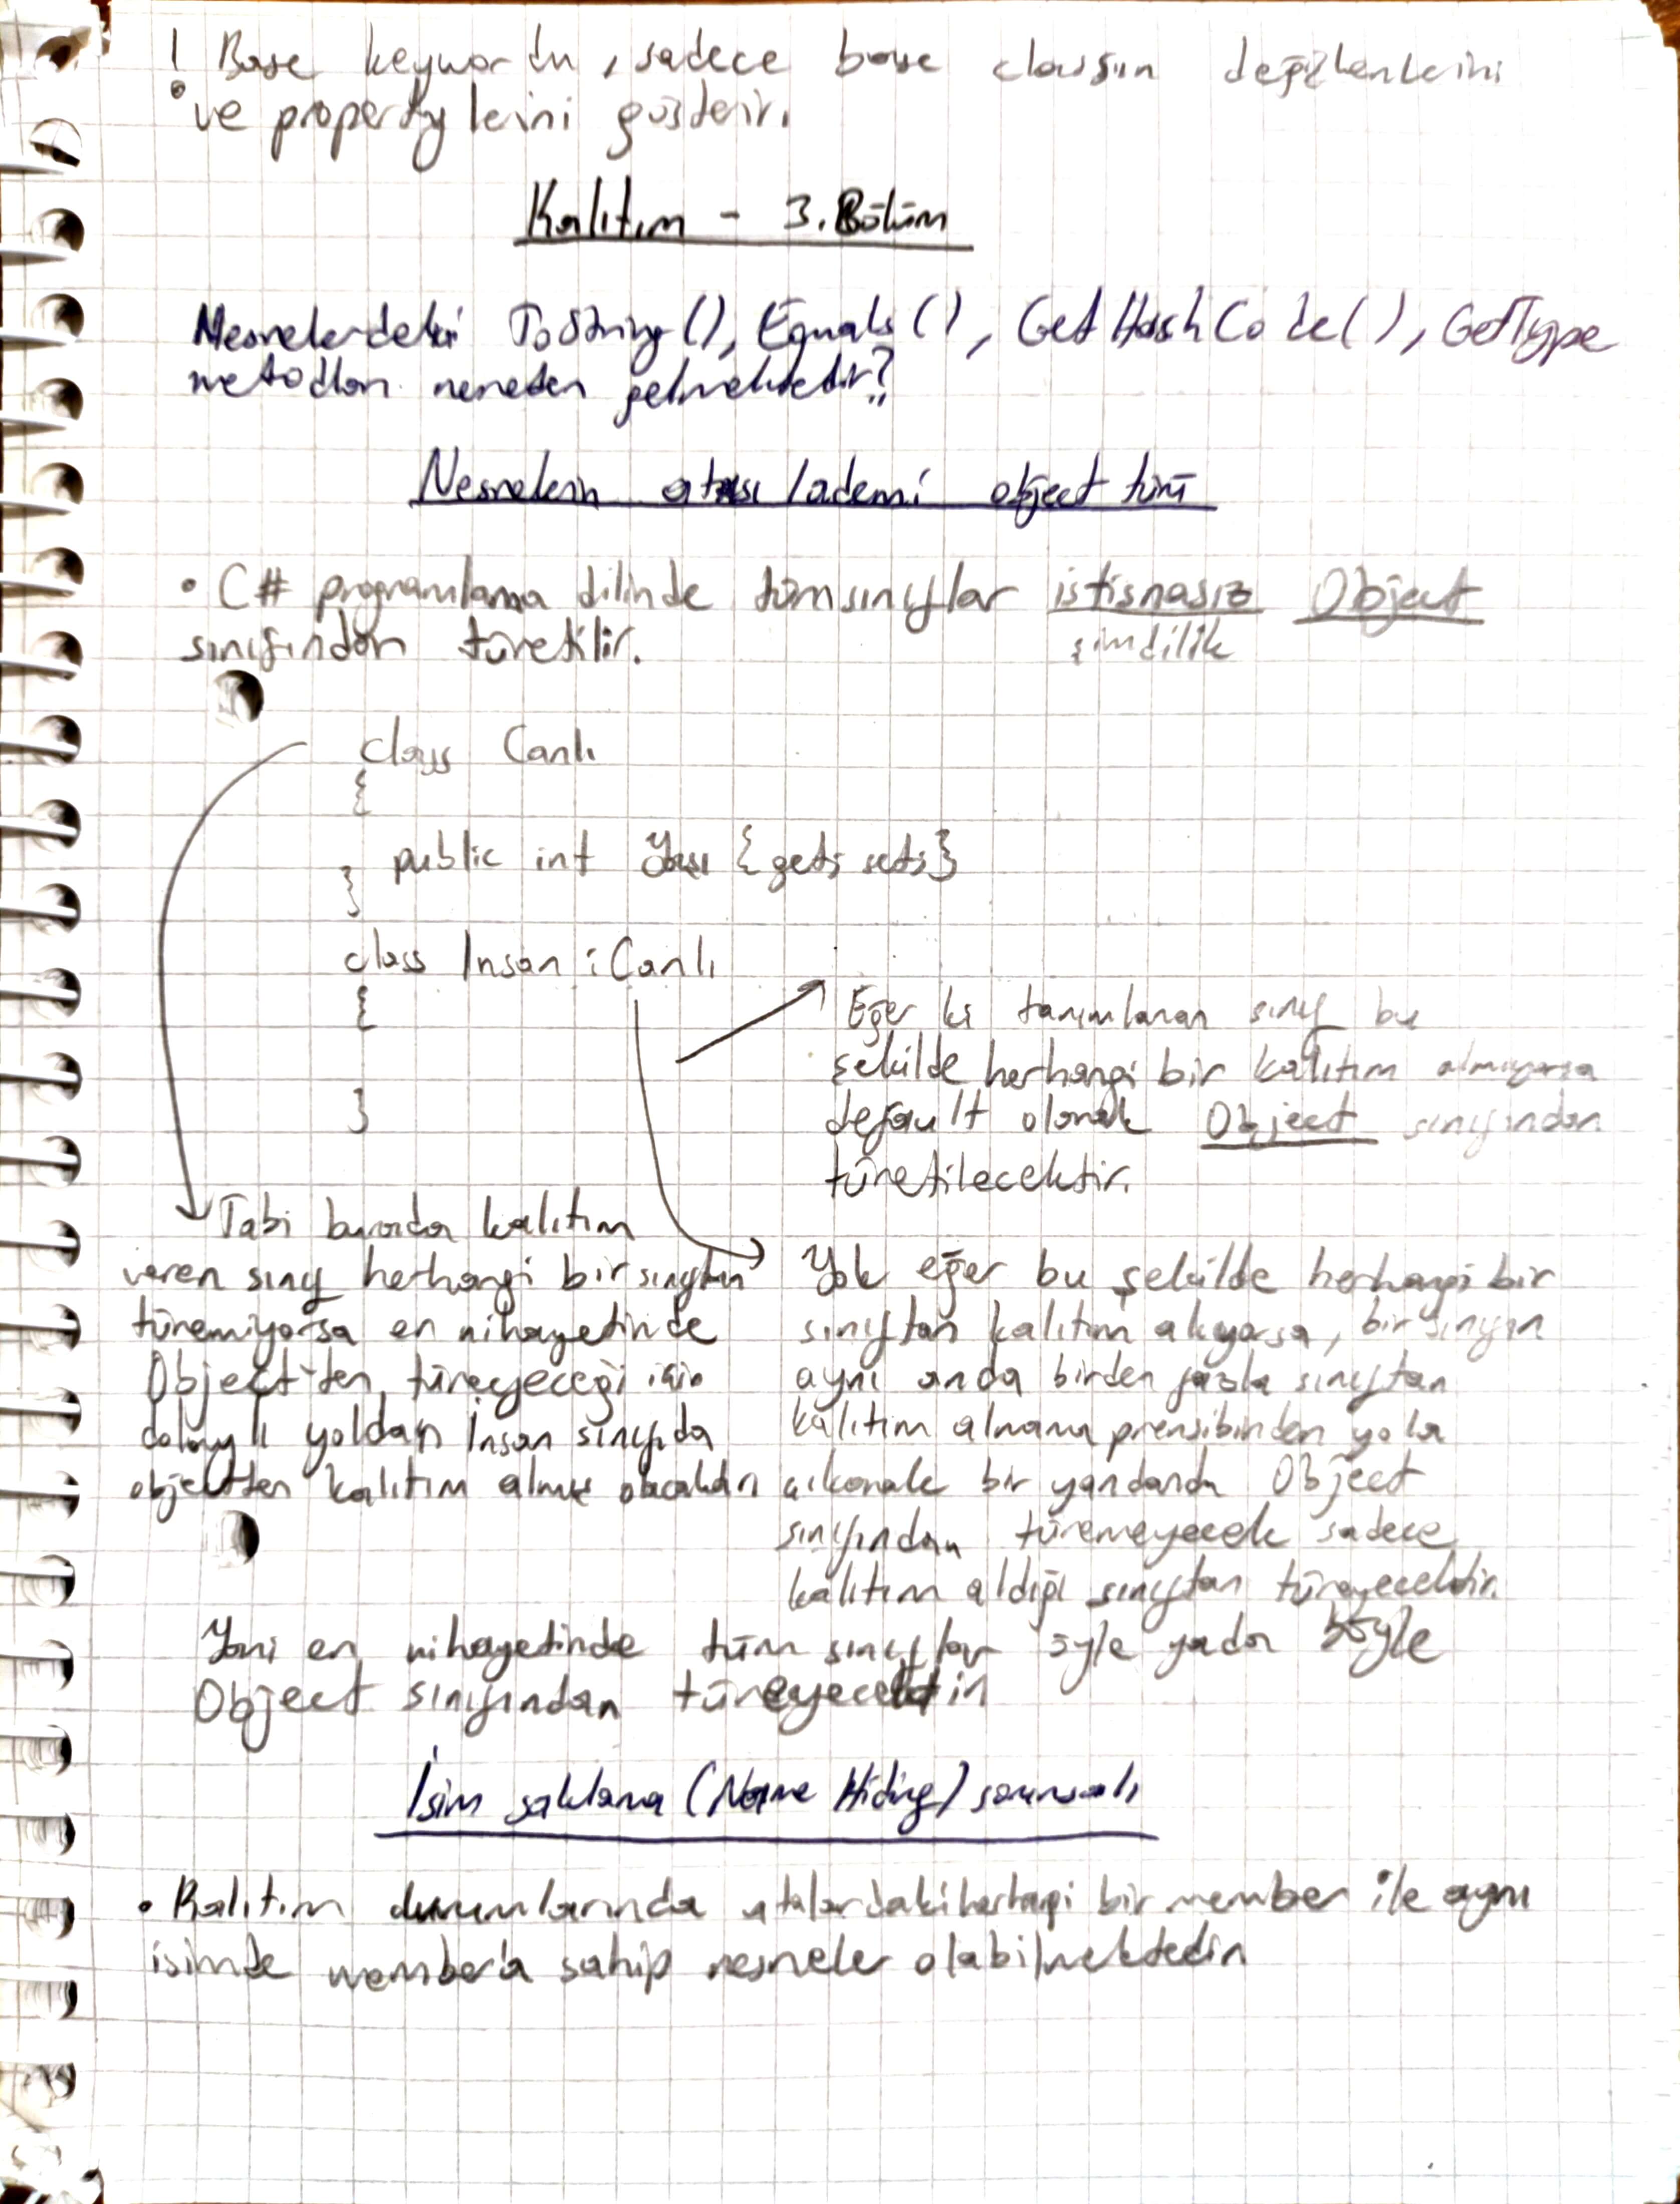 ! Base keywordu, sadece base classın değişkenlerini
ve propertylerini gösterir.
Kalıtım - 3. Bölüm
Nesnelerdeki ToString(), Equals(), GetHashCode(), GetType
metodları nereden gelmektedir?
Nesnelerin atası/ademi object türü
• C# programlama dilinde tüm sınıflar istisnasız Object
şimdilik
sınıfından türetilir.
class Canlı
{
public int Yası {get; set;}
}
class Insan : Canlı
{
}
Eğer ki tanımlanan sınıf bu
şekilde herhangi bir kalıtım almıyorsa
default olarak Object sınıfından
türetilecektir.
Tabi burada kalıtım
veren sınıf herhangi bir sınıftan
türemiyorsa en nihayetinde
Object'ten türeyeceği için
dolaylı yoldan İnsan sınıfıda
objectten kalıtım almış olacaktır
Yok eğer bu şekilde herhangi bir
sınıftan kalıtım alıyorsa, bir sınıfın
aynı anda birden fazla sınıftan
kalıtım almama prensibinden yola
çıkarak bir yandanda Object
sınıfından türemeyecek sadece
kalıtım aldığı sınıftan türeyecektir.
Yani en nihayetinde tüm sınıflar öyle yada böyle
Object sınıfından türeyecektir
İsim saklama (Name Hiding) sorunsalı
• Kalıtım durumlarında atalardaki herhangi bir member ile aynı
isimde member'a sahip nesneler olabilmektedir